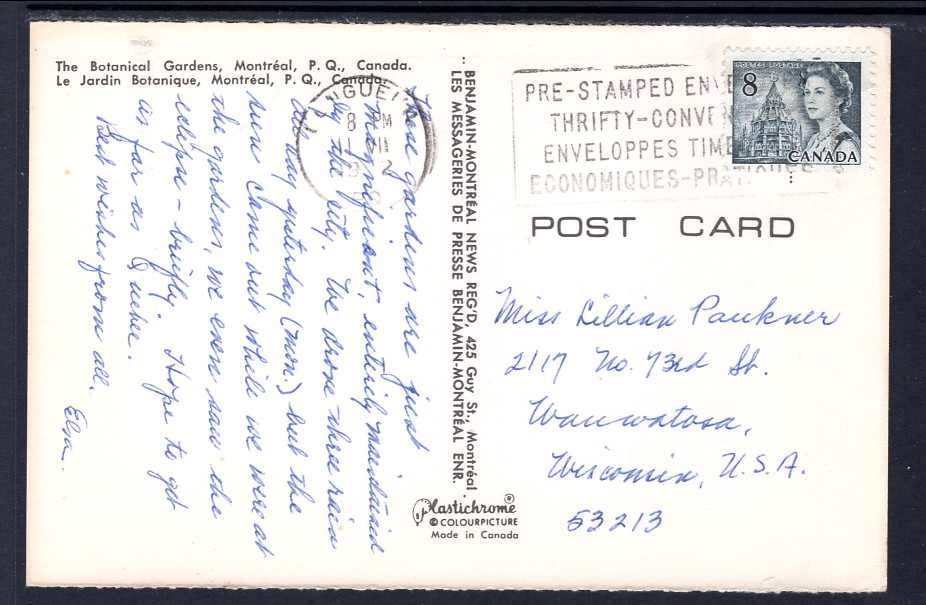 The Botanical Gardens, Montréal, P. Q., Canada.
Le Jardin Botanique, Montréal, P. Q., Canada.
These gardens are just
magnificent, entirely maintained
by the city. We drove three rain
all day yesterday (Mon.) but the
sun came out while we were at
the gardens, we even saw the
eclipse – briefly. Hope to get
as far as Quebec.
Best wishes from all.
Elsa.
BENJAMIN-MONTRÉAL NEWS REG'D, 425 Guy St., Montréal
LES MESSAGERIES DE PRESSE BENJAMIN-MONTRÉAL ENR.
Plastichrome®
© COLOURPICTURE
Made in Canada
LONGUEUIL
8 PM
PRE-STAMPED
THRIFTY-
ENVELOPPES
ECONOMIQUES-
POSTES POSTAGE
8
CANADA
POST CARD
Miss Lillian Paukner
2117 No. 73rd St.
Wauwatosa,
Wisconsin, U.S.A.
53213